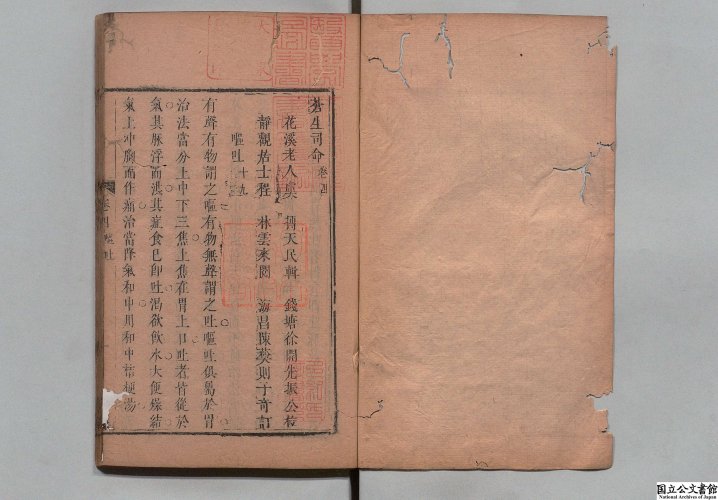 蒼生司命 卷四
花溪老人虞 摶天民輯 錢塘徐開先振公校
靜觀居士程 林雲來閱 海昌陳葵則于奇訂
嘔吐十九
有聲有物謂之嘔有物無聲謂之吐嘔吐俱屬於胃
治法當分上中下三焦上焦在胃上口吐者皆從於
氣其脉浮而洪其症食已即吐渴欲飲水大便燥結
氣上冲胸而作痛治當降氣和中用和中桔梗湯
卷四 嘔吐
国立公文書館
National Archives of Japan